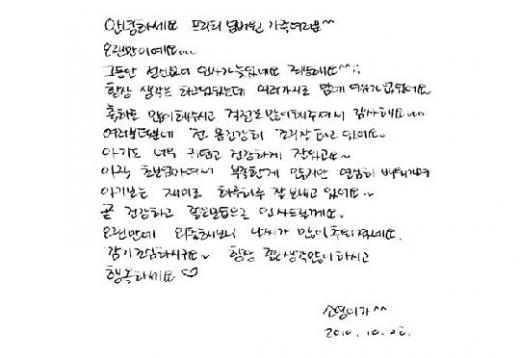 안녕하세요 프리티 넘버원 가족여러분^^
오랜만이예요...
그동안 정신없어 인사가늦었네요 죄송해요^^;;
항상 생각은 하고있었는데 여러가지로 맘에 여유가 없었어요
축하도 많이해주시고 걱정도 많이해주셔서 감사해요...
여러분덕분에 전 몸건강히 조리잘 하고 있어요~
아기도 너무 귀엽고 건강하게 잘있구요~
아직 초보엄마여서 부족한게 많지만 열심히 배워가며
아기보는 재미로 하루하루 잘 보내고 있어요~
곧 건강하고 좋은모습으로 인사드릴께요.
오랜만에 외출하보니 날씨가 많이 추워졌네요.
감기조심하시구요~ 항상 좋은생각많이 하시고
행복하세요♡
소영이가^^
2010. 10. 26.